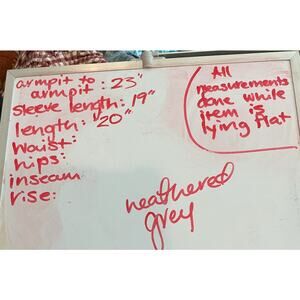 armpit to
armpit : 23"
sleeve length: 19"
length: "20"
waist:
hips:
inseam
rise:
All
measurements
done while
item is
lying flat
heathered
grey